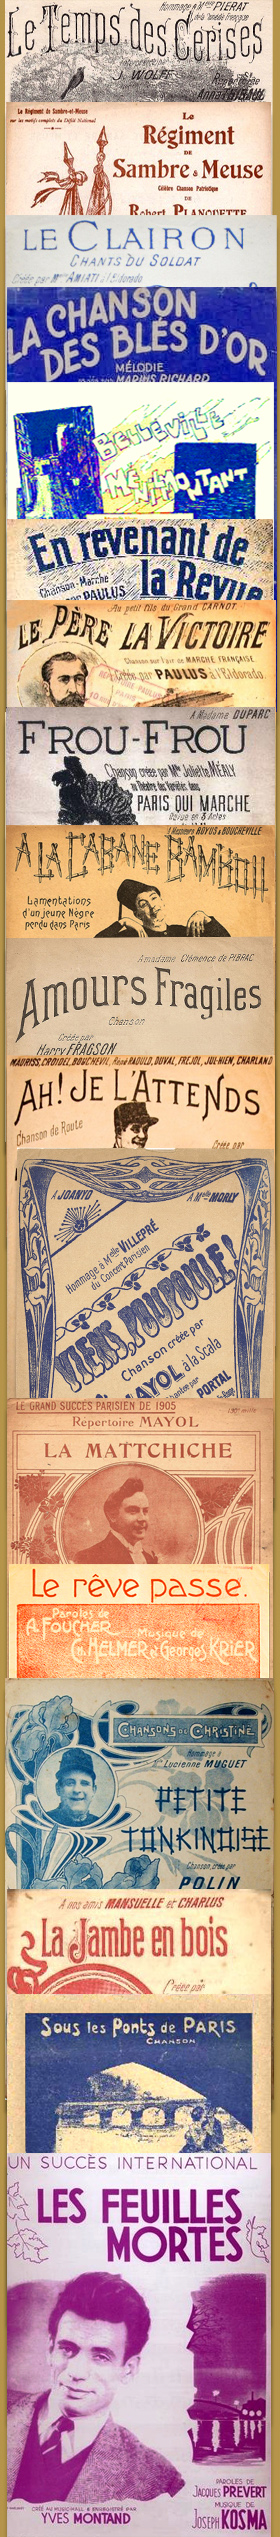 Hommage à Mme PIERAT
de la Comédie Française
Le Temps des Cerises
J. WOLFF
Le Régiment de Sambre-et-Meuse
sur les motifs complets du Défilé National
Le
Régiment
DE
Sambre & Meuse
Célèbre Chanson Patriotique
DE
Robert PLANQUETTE
LE CLAIRON
CHANTS DU SOLDAT
Créée par Mme AMIATI à l'Eldorado
LA CHANSON
DES BLÉS D'OR
MÉLODIE
MARIUS RICHARD
BELLEVILLE
MÉNILMONTANT
En revenant de
la Revue
Chanson-Marche
PAULUS
Au petit fils du Grand CARNOT
LE PÈRE LA VICTOIRE
Chanson sur l'air de MARCHE FRANÇAISE
Créée par PAULUS à l'Eldorado
A Madame DUPARC
FROU-FROU
Chanson créée par Mlle Juliette MÉALY
au Théâtre des Variétés dans
PARIS QUI MARCHE
Revue en 3 Actes
à Messieurs BOYOS & BOUCHEVILLE
A LA CABANE BAMBOU
Lamentations
d'un jeune Nègre
perdu dans Paris
A madame Clémence de PIBRAC
Amours Fragiles
Chanson
Créée par
Harry FRAGSON
MAURISS, CROIDEL, BOUCHEVIL, René RAOULD, DUVAL, FRÉJOL, JULHIEN, CHARLAND
AH! JE L'ATTENDS
Chanson de Route
Créée par
A JOANYD
A Melle MORLY
Hommage à Melle VILLEPRÉ
du Concert Parisien
VIENS, POUPOULE!
Chanson créée par
MAYOL à la Scala
chantée par PORTAL
LE GRAND SUCCÈS PARISIEN DE 1905
190e mille
Répertoire MAYOL
LA MATTCHICHE
Le rêve passe.
Paroles de
A. FOUCHER
Musique de
Ch. HELMER et Georges KRIER
CHANSONS DE CHRISTINÉ
Hommage à
Mlle Lucienne MUGUET
PETITE
TONKINOISE
Chanson créée par
POLIN
A nos amis MANSUELLE et CHARLUS
La Jambe en bois
Créée par
SOUS LES PONTS DE PARIS
CHANSON
UN SUCCÈS INTERNATIONAL
LES FEUILLES
MORTES
CRÉÉ AU MUSIC-HALL & ENREGISTRÉ PAR
YVES MONTAND
PAROLES DE
JACQUES PRÉVERT
MUSIQUE DE
JOSEPH KOSMA